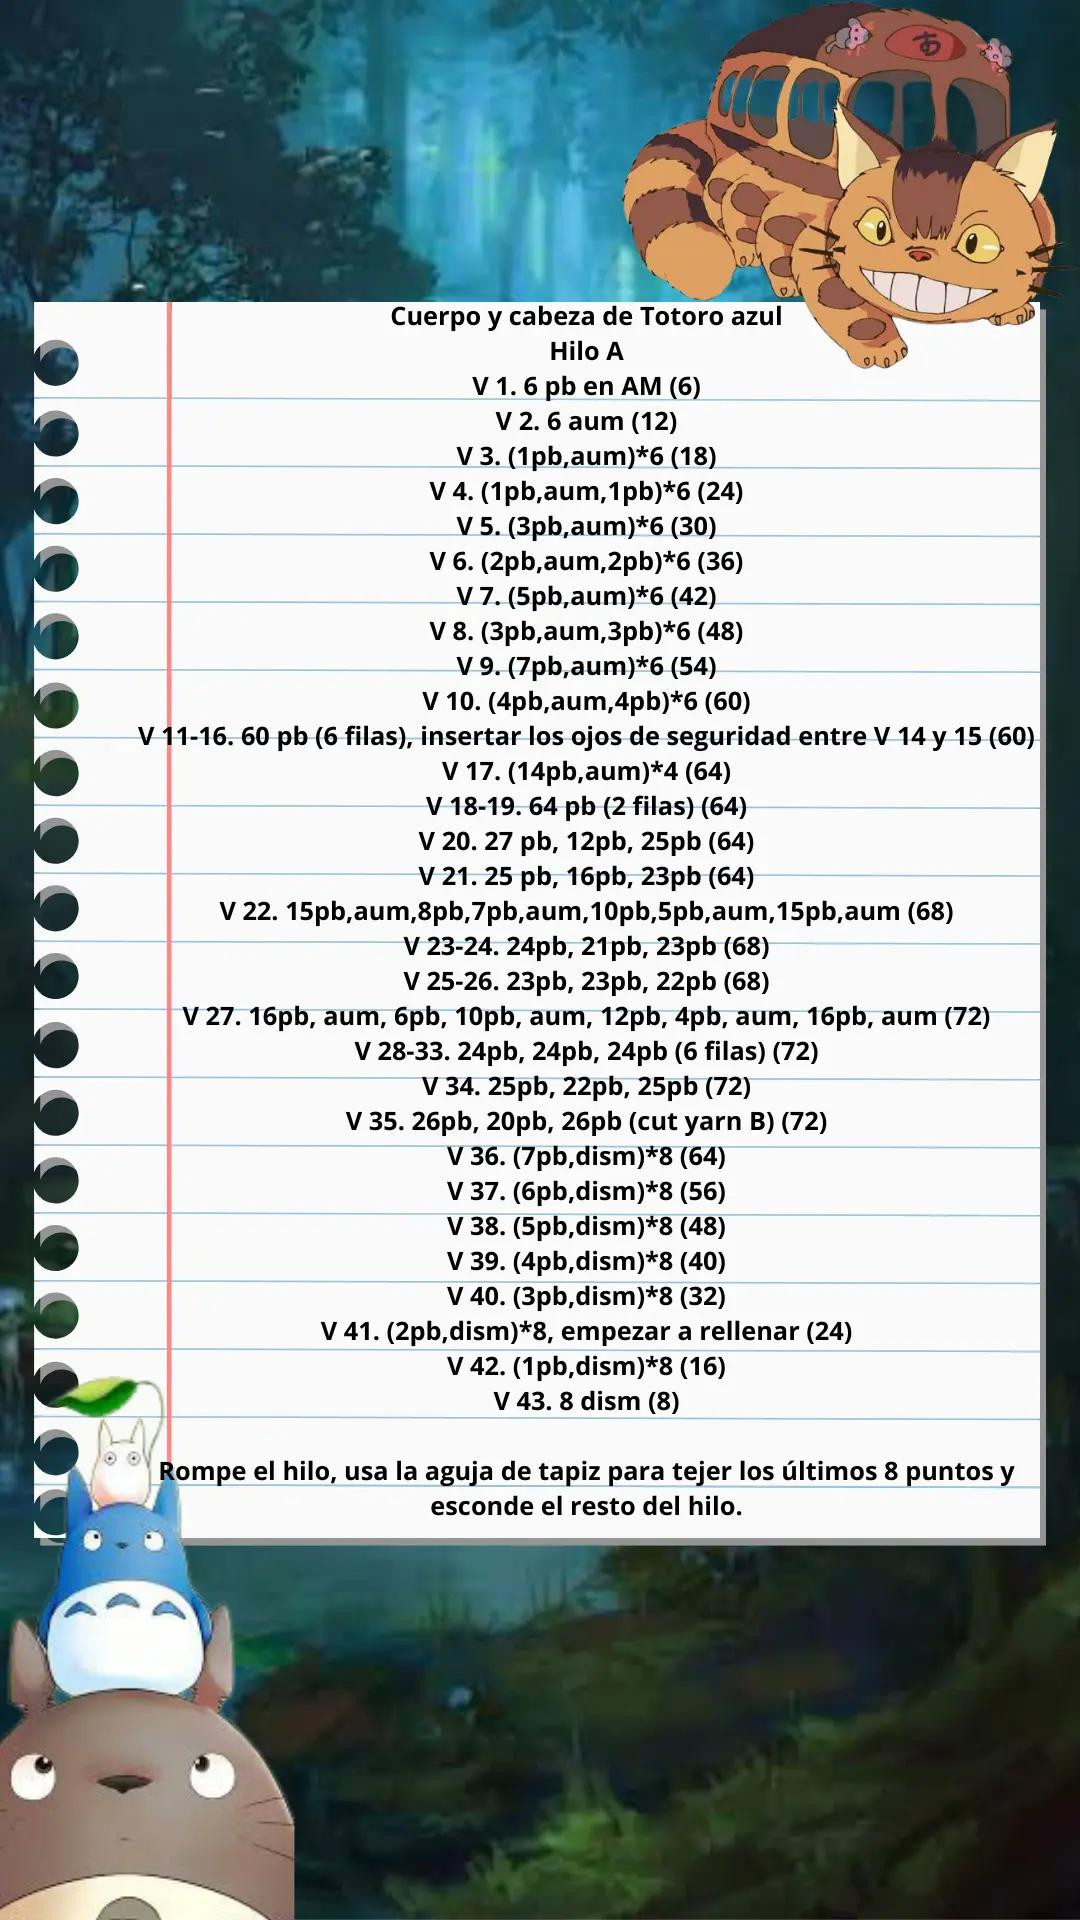 あ
Cuerpo y cabeza de Totoro azul
Hilo A
V 1. 6 pb en AM (6)
V 2. 6 aum (12)
V 3. (1pb,aum)*6 (18)
V 4. (1pb,aum,1pb)*6 (24)
V 5. (3pb,aum)*6 (30)
V 6. (2pb,aum,2pb)*6 (36)
V 7. (5pb,aum)*6 (42)
V 8. (3pb,aum,3pb)*6 (48)
V 9. (7pb,aum)*6 (54)
V 10. (4pb,aum,4pb)*6 (60)
V 11-16. 60 pb (6 filas), insertar los ojos de seguridad entre V 14 y 15 (60)
V 17. (14pb,aum)*4 (64)
V 18-19. 64 pb (2 filas) (64)
V 20. 27 pb, 12pb, 25pb (64)
V 21. 25 pb, 16pb, 23pb (64)
V 22. 15pb,aum,8pb,7pb,aum,10pb,5pb,aum,15pb,aum (68)
V 23-24. 24pb, 21pb, 23pb (68)
V 25-26. 23pb, 23pb, 22pb (68)
V 27. 16pb, aum, 6pb, 10pb, aum, 12pb, 4pb, aum, 16pb, aum (72)
V 28-33. 24pb, 24pb, 24pb (6 filas) (72)
V 34. 25pb, 22pb, 25pb (72)
V 35. 26pb, 20pb, 26pb (cut yarn B) (72)
V 36. (7pb,dism)*8 (64)
V 37. (6pb,dism)*8 (56)
V 38. (5pb,dism)*8 (48)
V 39. (4pb,dism)*8 (40)
V 40. (3pb,dism)*8 (32)
V 41. (2pb,dism)*8, empezar a rellenar (24)
V 42. (1pb,dism)*8 (16)
V 43. 8 dism (8)
Rompe el hilo, usa la aguja de tapiz para tejer los últimos 8 puntos y
esconde el resto del hilo.